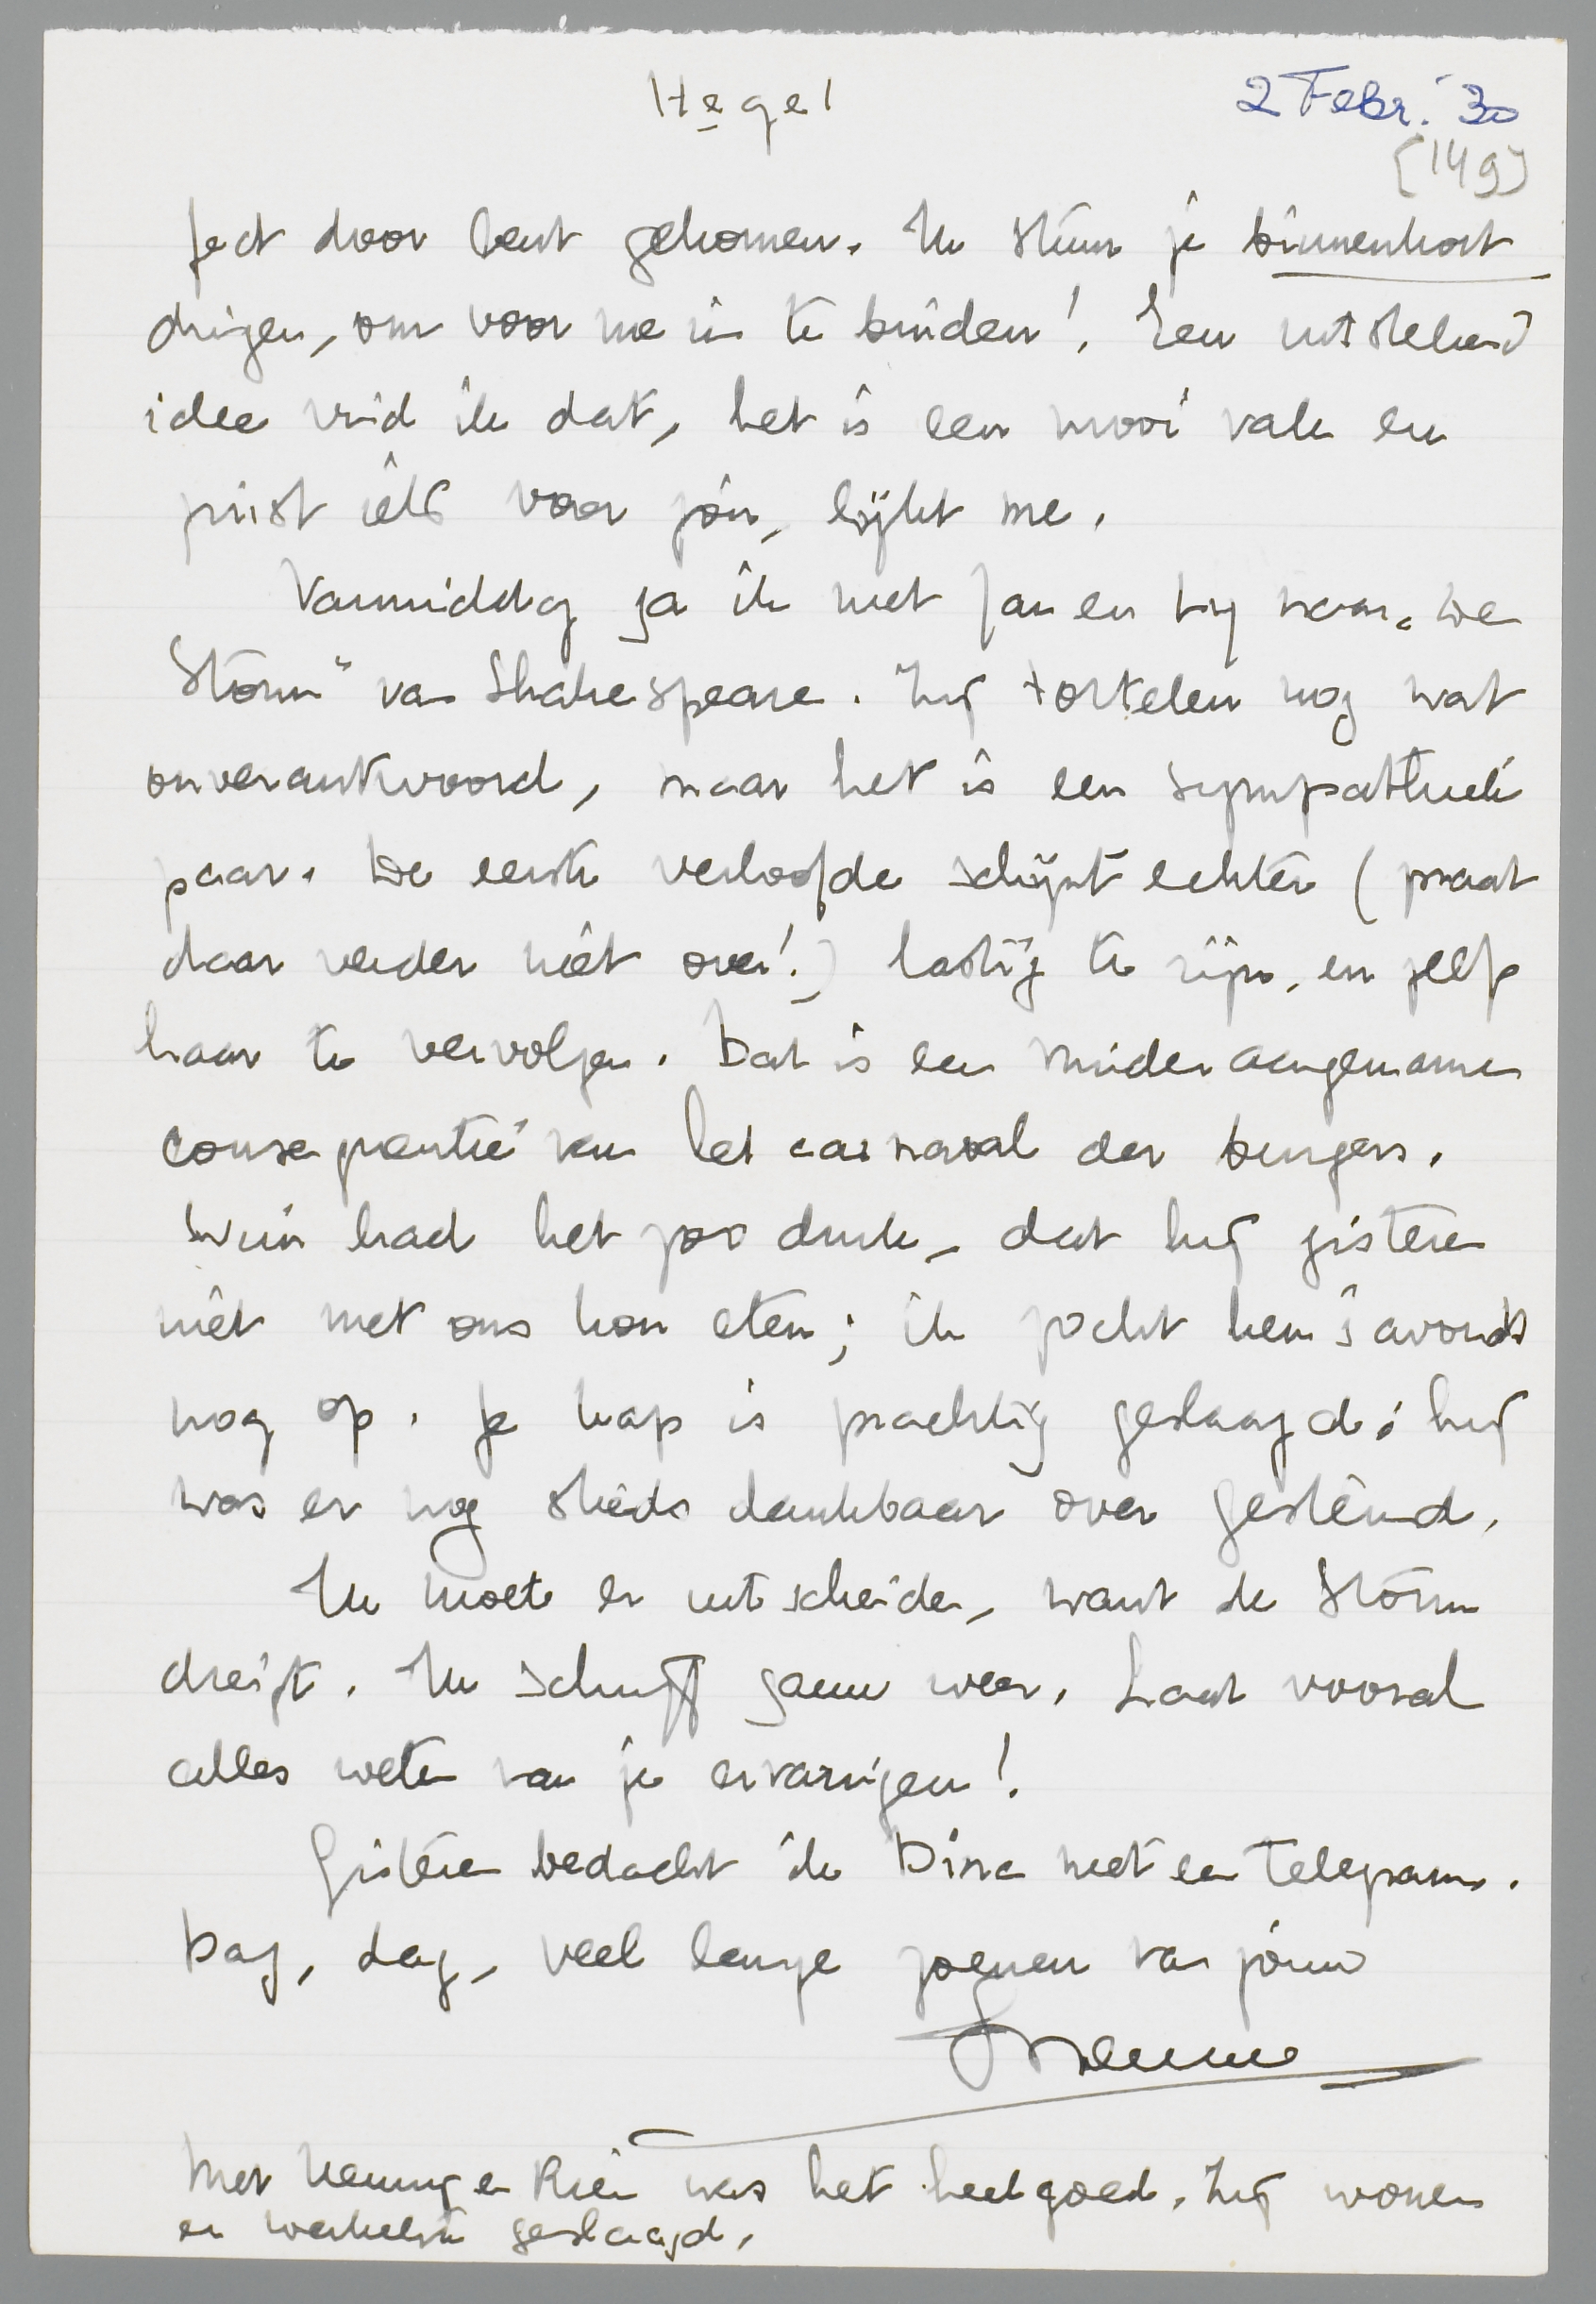 Hegel
2 Febr. '30
[149]
fect door Kant gekomen. Ik stuur je binnenkort
dingen, om voor me in te binden! Een uitstekend
idee vind ik dat, het is een mooi vak en
juist iets voor jou, lijkt me.
Vanmiddag ga ik met Jan en naar „De
Storm" van Shakespeare. Zij tortelen nog wat
onverantwoord, maar het is een sympathiek
paar. De eerste verloofde schijnt echter (praat
daar verder niet over!) lastig te zijn, en zelfs
haar te vervolgen. Dat is een minder aangename
consequentie van het carnaval der burgers.
Wim had het zoo druk, dat hij gisteren
niet met ons kon eten; ik zocht hem 's avonds
nog op. Je kap is prachtig geslaagd; hij
was er nog steeds dankbaar over gestemd.
Ik moet er uit scheiden, want de Storm
dreigt. Ik schrijf gauw weer. Laat vooral
alles weten van je ervaringen!
Gisteren bedacht ik Dina met een telegram.
Dag, dag, veel lange zoenen van jouw
Menno
Met Henny en Rien was het heel goed. Zij wonen
er werkelijk geslaagd.